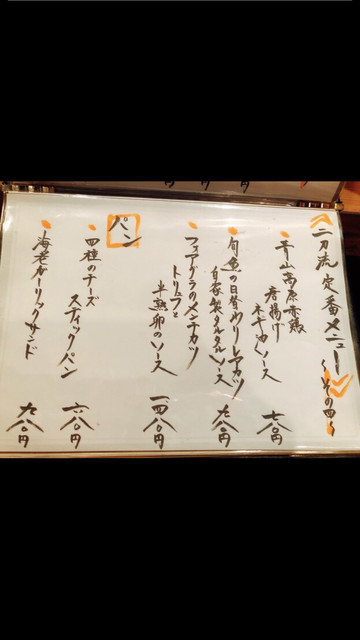 二刀流 定番メニュー 〜その四〜
青山高原赤鶏
唐揚げ
ネギ油ソース
七八〇円
旬魚の日替わりレアカツ
自家製タルタルソース
九八〇円
フォアグラのメンチカツ
トリュフと
半熟卵のソース
一四八〇円
パン
四種のチーズ
スティックパン
六八〇円
海老ガーリックサンド
九八〇円